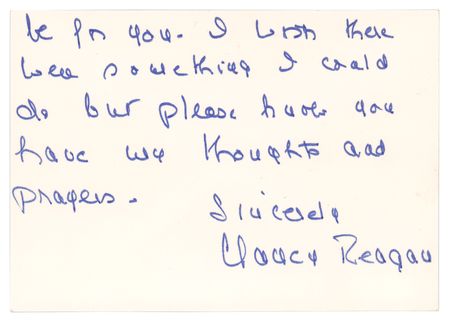 be for you. I wish there
were something I could
do but please know you
have my thoughts and
prayers.
Sincerely
Nancy Reagan